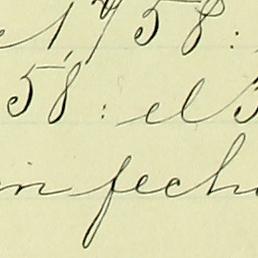 1,758:
58: el 3
in fech